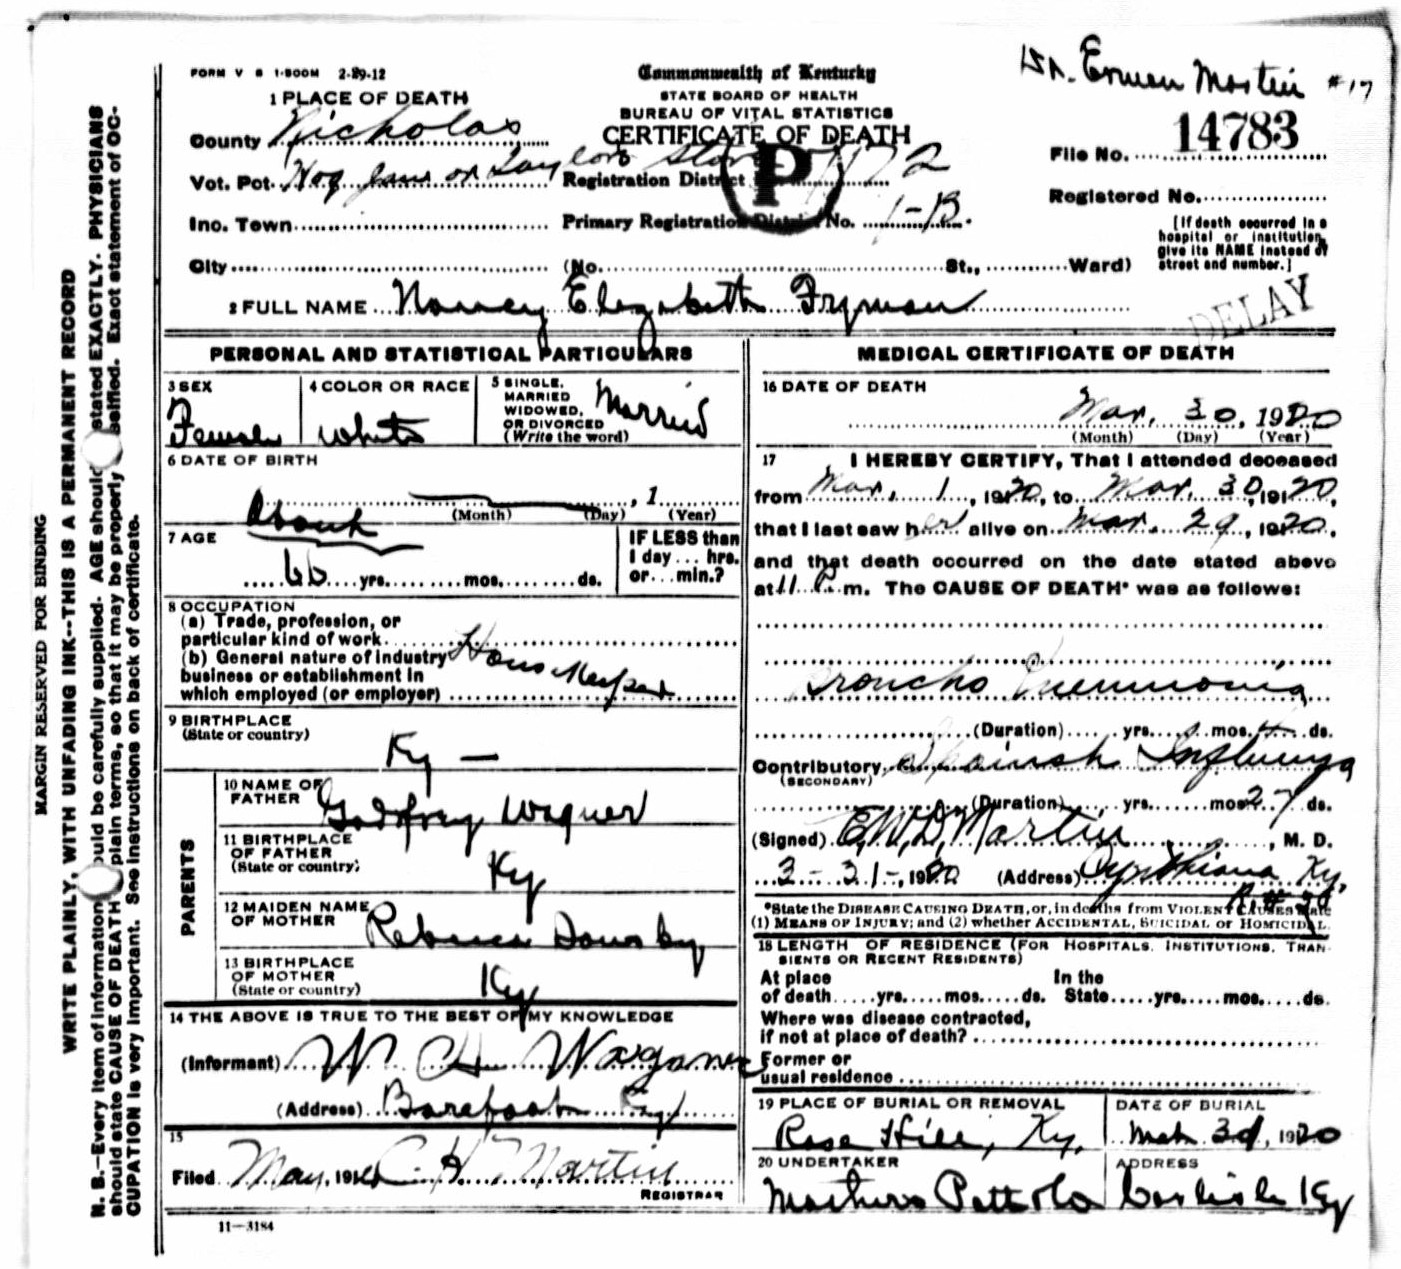 FORM V S 1-500M 2-29-12
Commonwealth of Kentucky
STATE BOARD OF HEALTH
BUREAU OF VITAL STATISTICS
CERTIFICATE OF DEATH
Dr. Erwen Martin #17
File No. 14783
Registered No.
[If death occurred in a
hospital or institution,
give its NAME instead of
street and number.]
DELAY
1 PLACE OF DEATH
County Nicholas
Vot. Pct. Taylors Store Registration District 72
P
Inc. Town Primary Registration District No. 1-B.
City (No. St., Ward)
2 FULL NAME Nancy Elizabeth Fryman
PERSONAL AND STATISTICAL PARTICULARS
3 SEX
Female
4 COLOR OR RACE
White
5 SINGLE,
MARRIED
WIDOWED,
OR DIVORCED
(Write the word)
Married
6 DATE OF BIRTH
, 1
(Month) (Day) (Year)
7 AGE
About
66 yrs. mos. ds.
IF LESS than
1 day ... hrs.
or ... min.?
8 OCCUPATION
(a) Trade, profession, or
particular kind of work
(b) General nature of industry
business or establishment in
which employed (or employer)
House Keeper
9 BIRTHPLACE
(State or country)
Ky —
PARENTS
10 NAME OF
FATHER
Godfrey Wagner
11 BIRTHPLACE
OF FATHER
(State or country)
Ky
12 MAIDEN NAME
OF MOTHER
Rebecca
13 BIRTHPLACE
OF MOTHER
(State or country)
Ky
14 THE ABOVE IS TRUE TO THE BEST OF MY KNOWLEDGE
(Informant) W. H. Wagoner
(Address) Barefoot Ky
15
Filed May, 191 C. H. Martin
REGISTRAR
11—3184
MEDICAL CERTIFICATE OF DEATH
16 DATE OF DEATH
Mar. 30, 1920
(Month) (Day) (Year)
17 I HEREBY CERTIFY, That I attended deceased
from Mar. 1, 1920, to Mar. 30, 1920,
that I last saw her alive on Mar. 29, 1920,
and that death occurred on the date stated above
at 11 P. m. The CAUSE OF DEATH* was as follows:
Broncho Pneumonia
(Duration) yrs. mos. ds.
Contributory Spanish Influenza
(SECONDARY)
(Duration) yrs. mos. 27 ds.
(Signed) E.W.D. Martin, M. D.
3-31-, 1920 (Address) Cynthiana Ky,
*State the DISEASE CAUSING DEATH, or, in deaths from VIOLENT CAUSES state
(1) MEANS OF INJURY; and (2) whether ACCIDENTAL, SUICIDAL or HOMICIDAL.
18 LENGTH OF RESIDENCE (FOR HOSPITALS, INSTITUTIONS, TRAN-
SIENTS OR RECENT RESIDENTS)
At place In the
of death yrs. mos. ds. State yrs. mos. ds.
Where was disease contracted,
if not at place of death?
Former or
usual residence
19 PLACE OF BURIAL OR REMOVAL
Rose Hill, Ky.
DATE OF BURIAL
Mch 31, 1920
20 UNDERTAKER
Mathers
ADDRESS
Carlisle Ky
MARGIN RESERVED FOR BINDING
WRITE PLAINLY, WITH UNFADING INK--THIS IS A PERMANENT RECORD
N. B.—Every item of information should be carefully supplied. AGE should stated EXACTLY. PHYSICIANS
should state CAUSE OF DEATH plain terms, so that it may be properly classified. Exact statement of OC-
CUPATION is very important. See instructions on back of certificate.